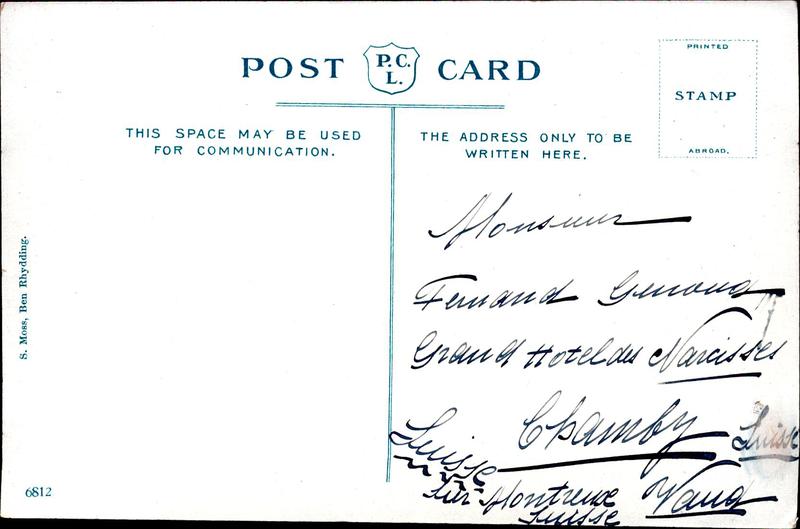 POST P.C.L. CARD
PRINTED
STAMP
ABROAD.
THIS SPACE MAY BE USED
FOR COMMUNICATION.
THE ADDRESS ONLY TO BE
WRITTEN HERE.
S. Moss, Ben Rhydding.
Monsieur
Fernand Genoud
Grand Hotel des Narcisses
Chamby Suisse
Suisse
sur Montreux Vaud
Suisse
6812